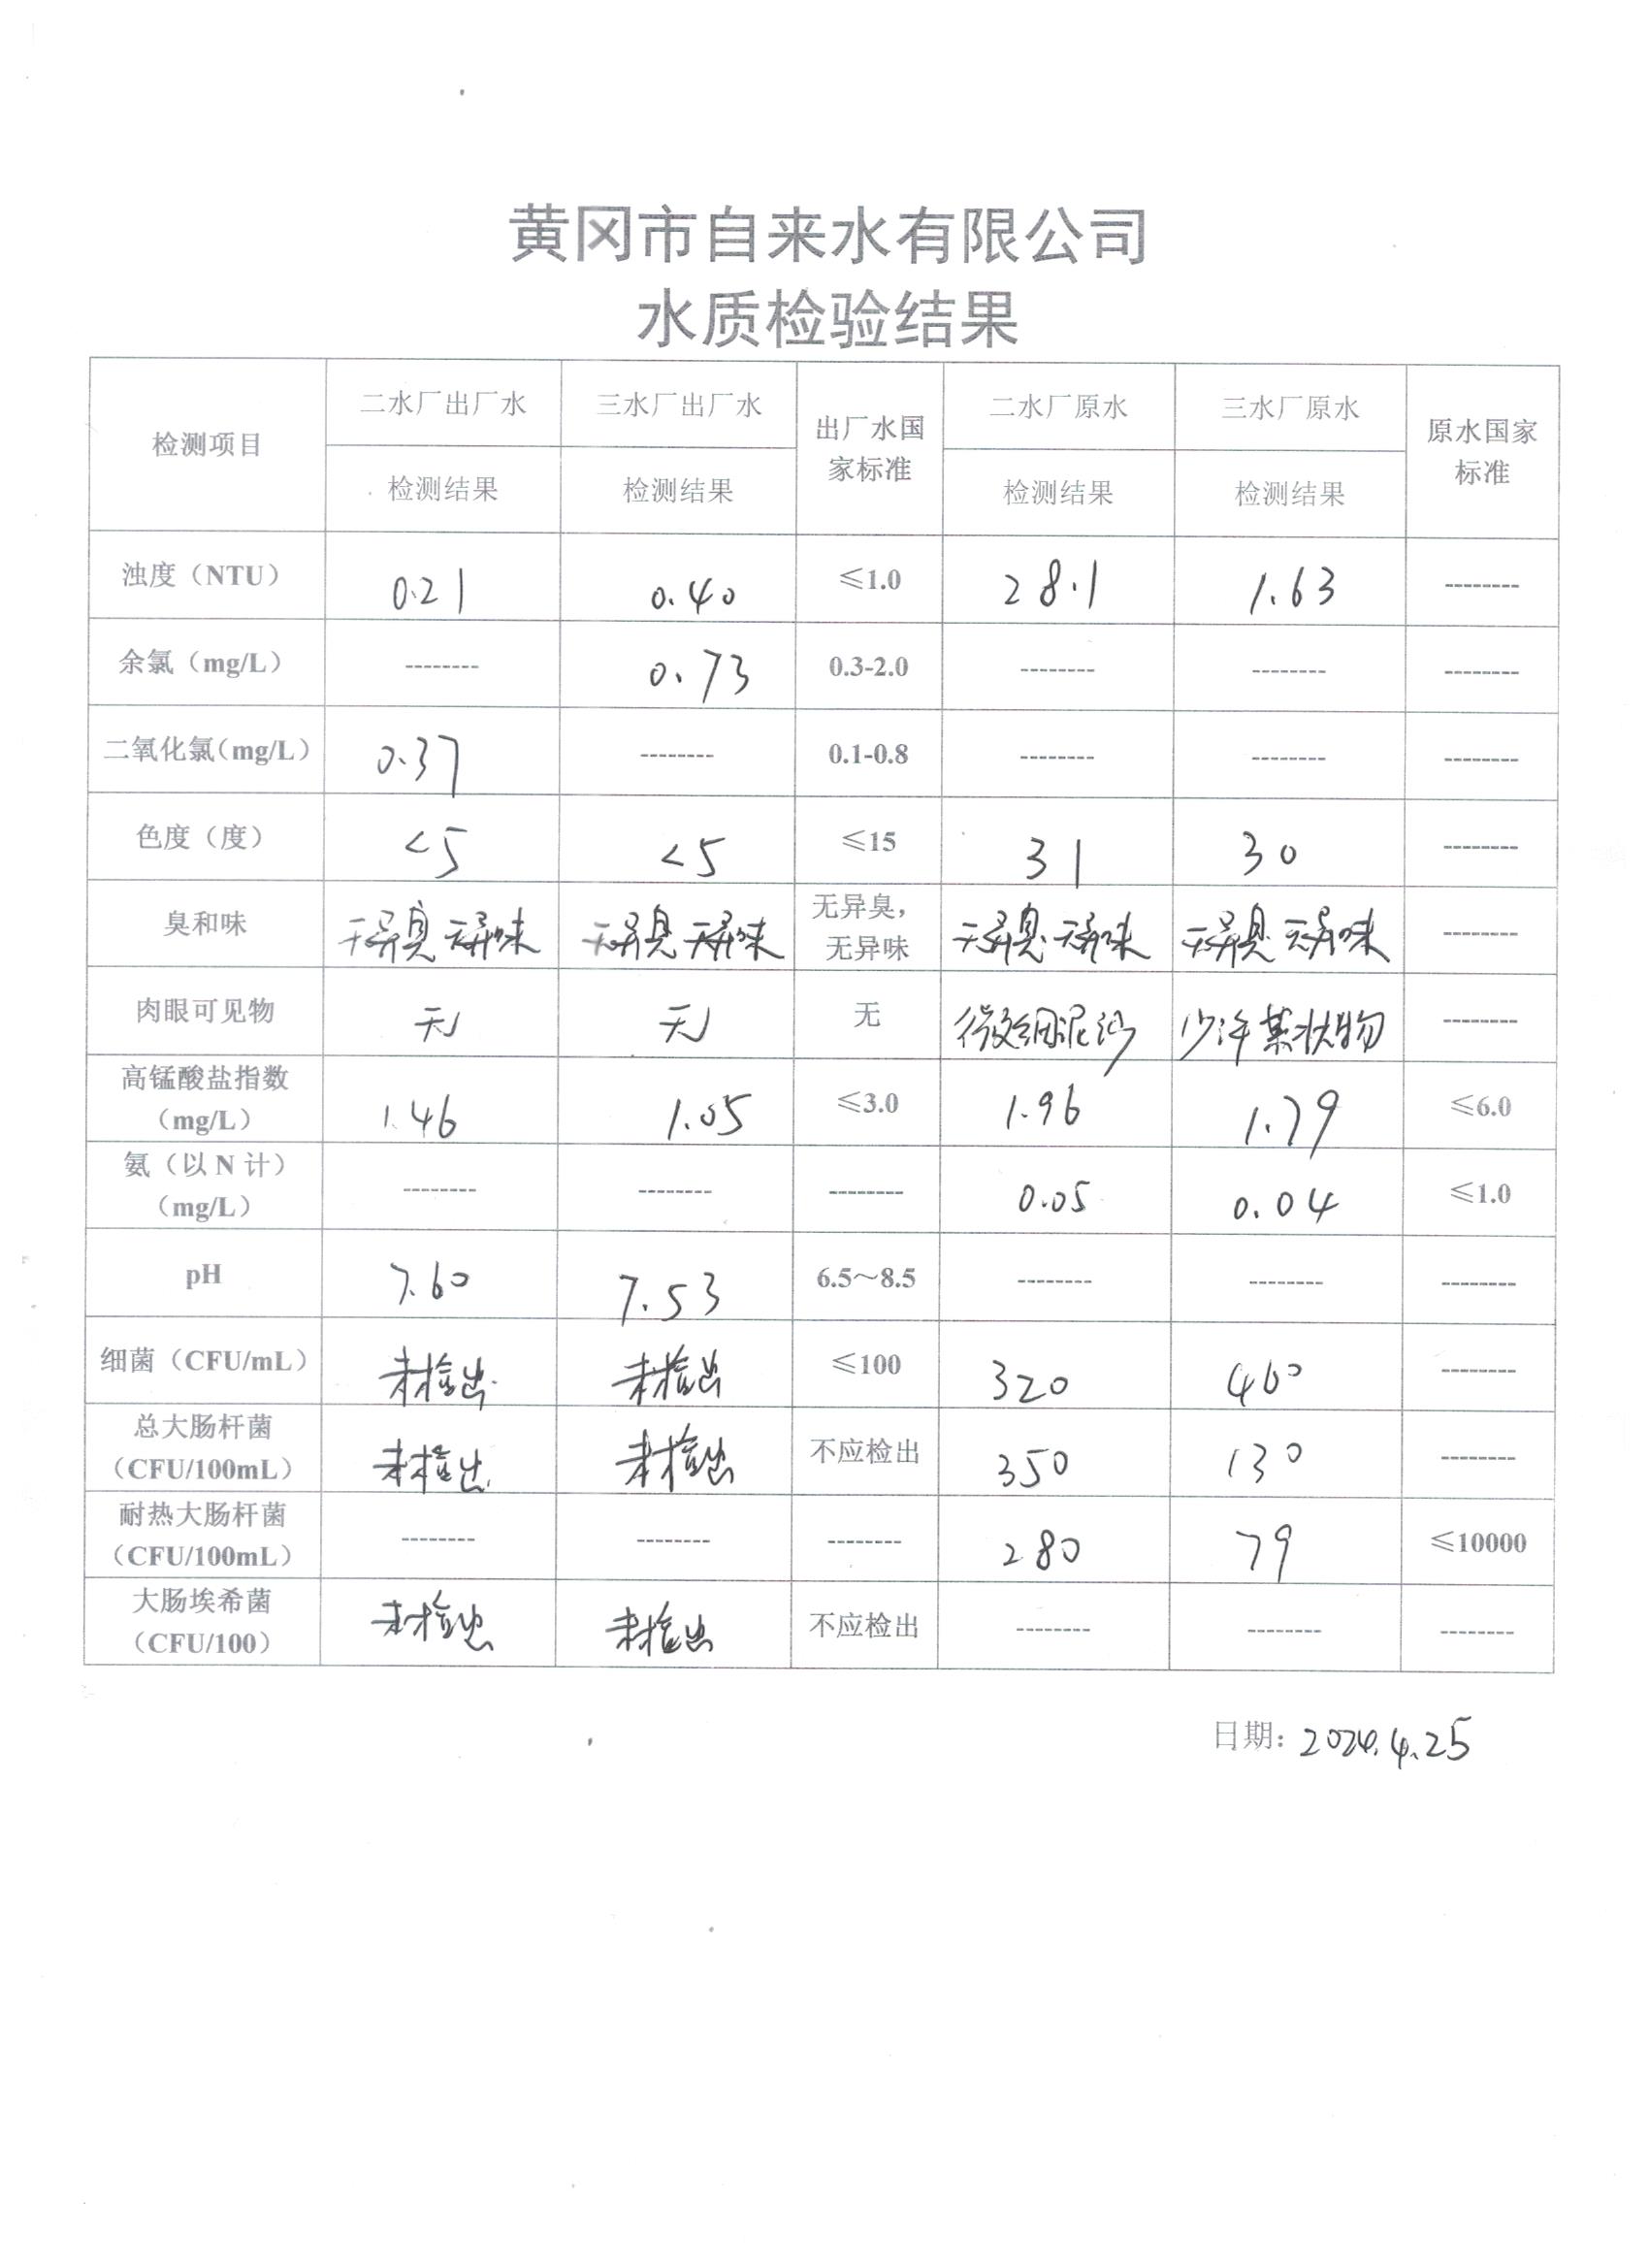 黄冈市自来水有限公司
水质检验结果
检测项目 二水厂出厂水 三水厂出厂水 出厂水国家标准 二水厂原水 三水厂原水 原水国家标准
检测结果 检测结果 检测结果 检测结果
浊度（NTU） 0.21 0.40 ≤1.0 28.1 1.63 --------
余氯（mg/L） -------- 0.73 0.3-2.0 -------- -------- --------
二氧化氯（mg/L） 0.37 -------- 0.1-0.8 -------- -------- --------
色度（度） <5 <5 ≤15 31 30 --------
臭和味 无异臭无异味 无异臭无异味 无异臭，无异味 无异臭.无异味 无异臭.无异味 --------
肉眼可见物 无 无 无 微细泥沙 少许藻状物 --------
高锰酸盐指数（mg/L） 1.46 1.05 ≤3.0 1.96 1.79 ≤6.0
氨（以 N 计）（mg/L） -------- -------- -------- 0.05 0.04 ≤1.0
pH 7.60 7.53 6.5～8.5 -------- -------- --------
细菌（CFU/mL） 未检出 未检出 ≤100 320 460 --------
总大肠杆菌（CFU/100mL） 未检出 未检出 不应检出 350 130 --------
耐热大肠杆菌（CFU/100mL） -------- -------- -------- 280 79 ≤10000
大肠埃希菌（CFU/100） 未检出 未检出 不应检出 -------- -------- --------
日期: 2024.4.25